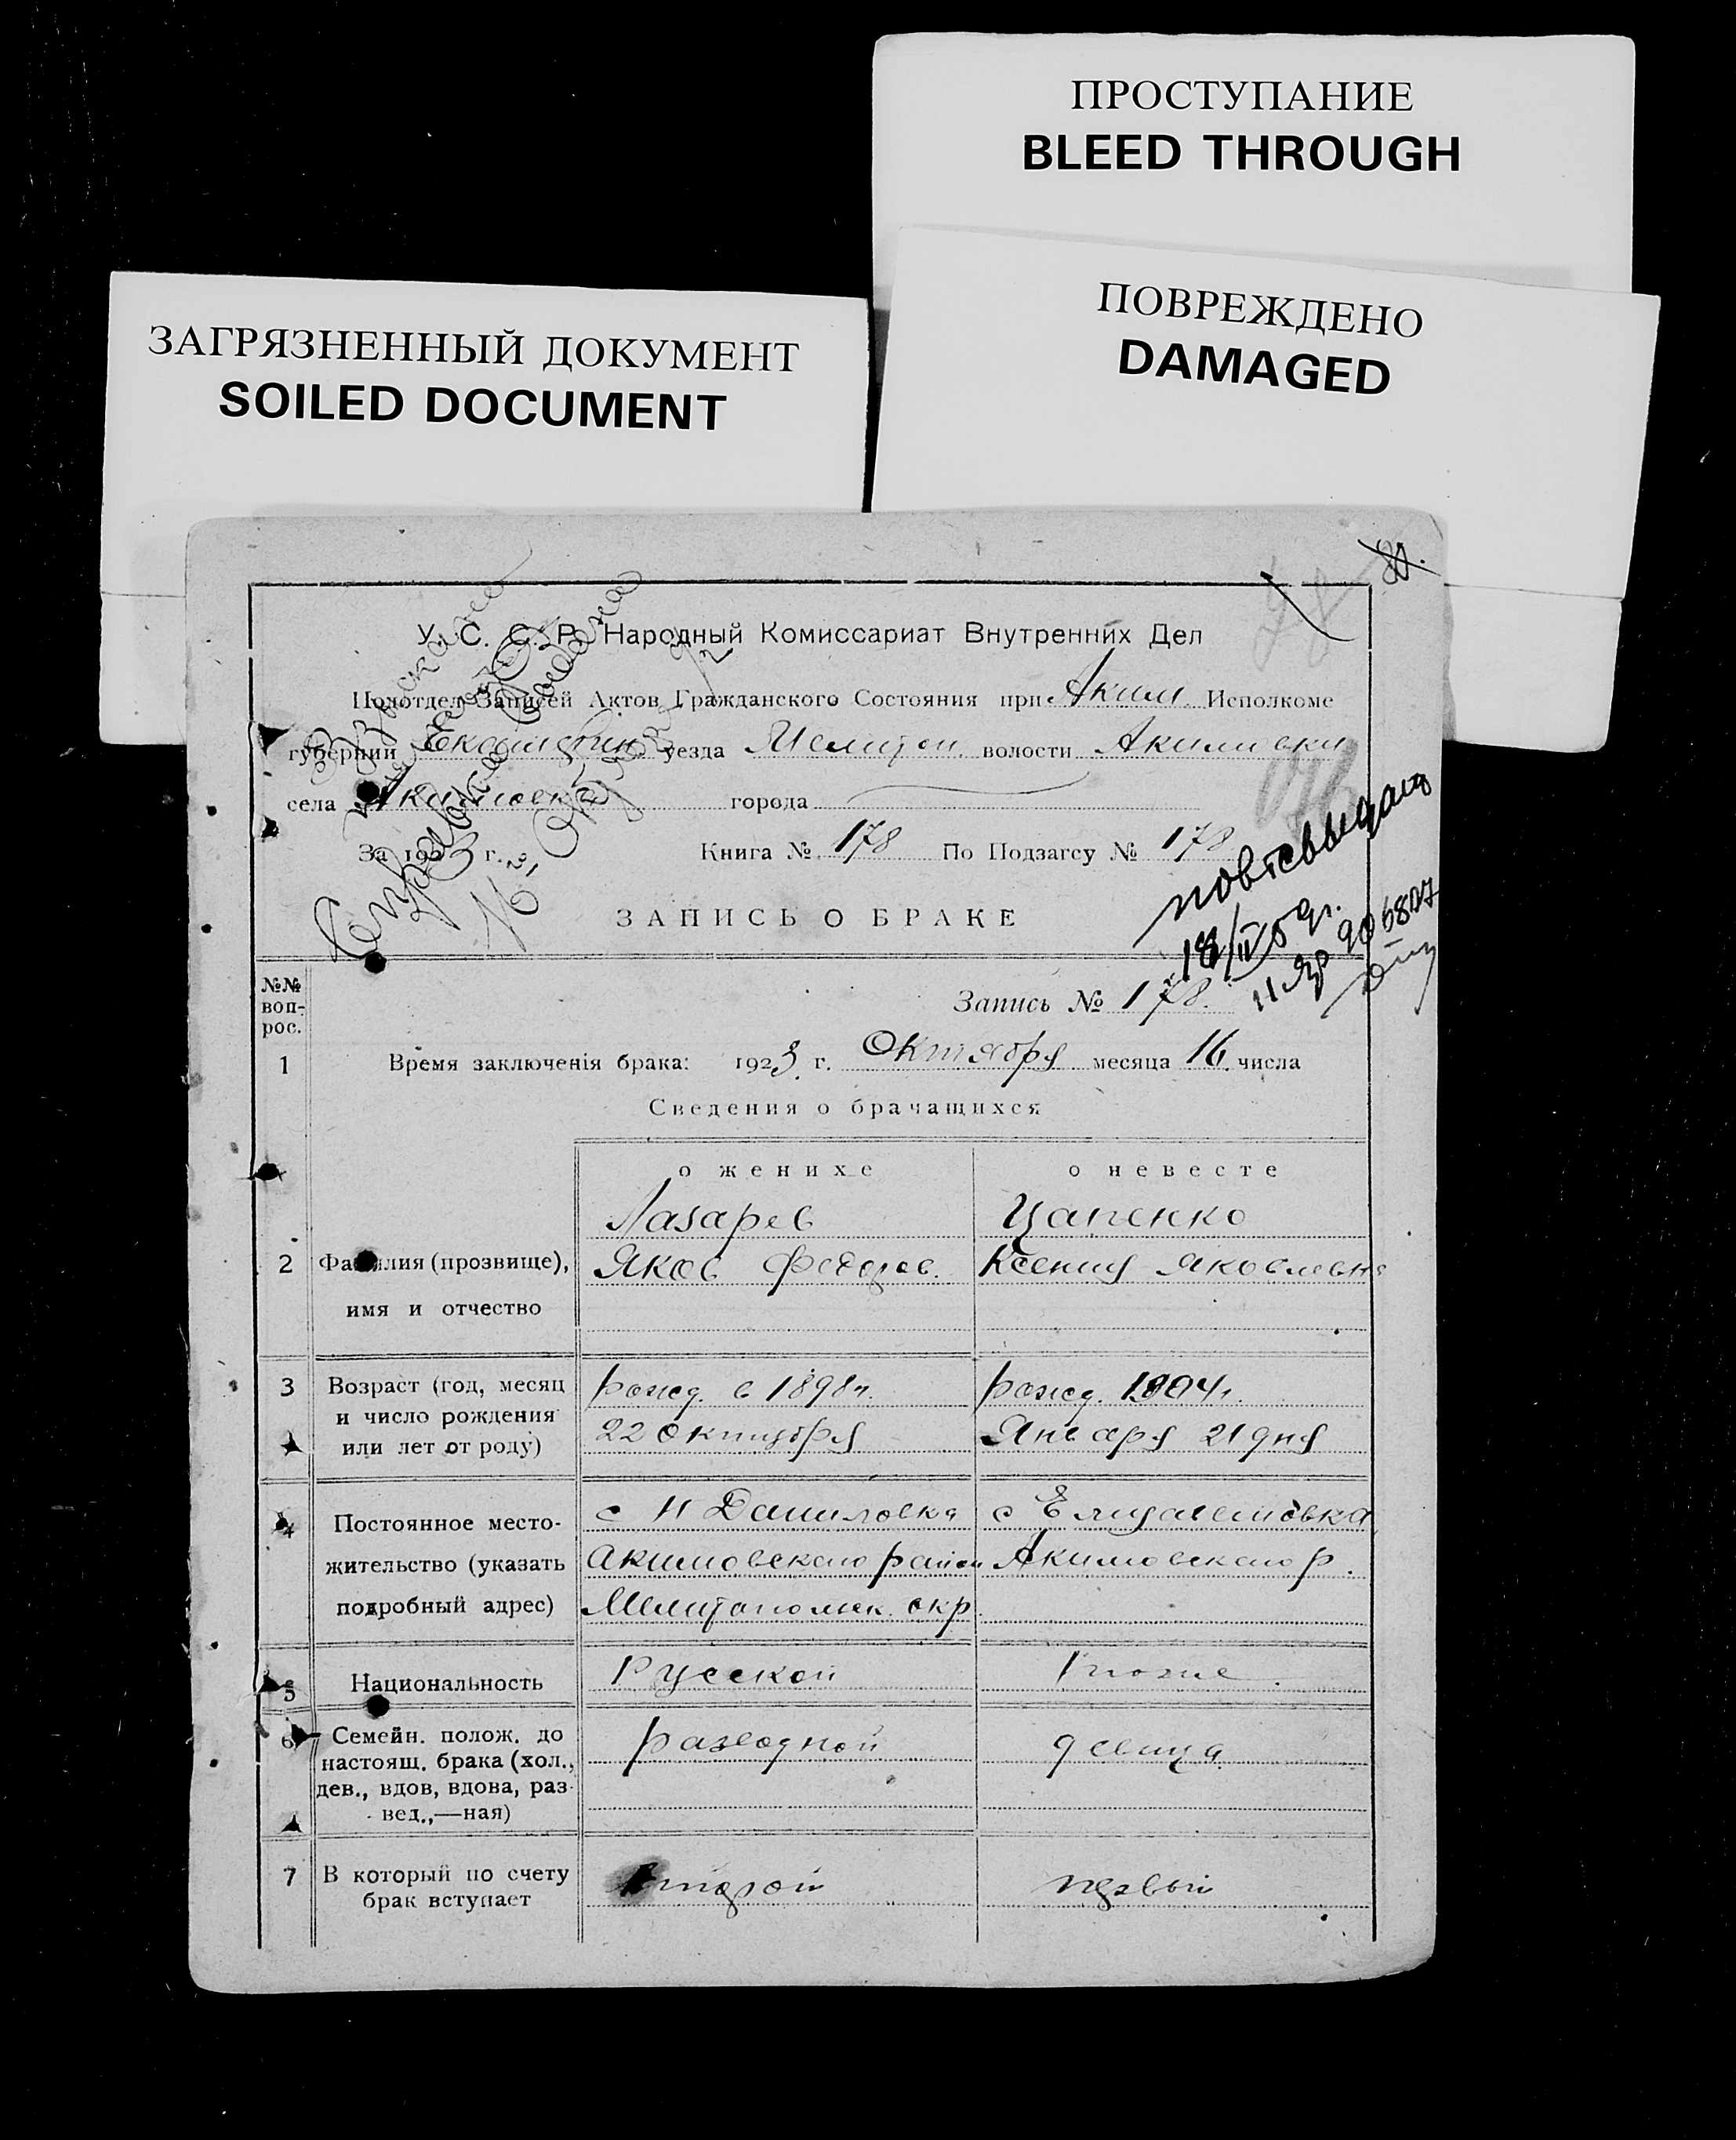 ПРОСТУПАНИЕ
BLEED THROUGH
ПОВРЕЖДЕНО
DAMAGED
ЗАГРЯЗНЕННЫЙ ДОКУМЕНТ
SOILED DOCUMENT
У. С. С. Р. Народный Комиссариат Внутренних Дел
Подотдел Записей Актов Гражданского Состояния при Аким. Исполкоме
губернии Екатерин. уезда Мелитоп. волости Акимовки
села Акимовка города
За 1923 г. Книга № 178 По Подзагсу № 178
повт выдан
18/IV 50 г.
ЗАПИСЬ О БРАКЕ
№№ воп-рос.
Запись № 178.
1 Время заключенія брака: 1923 г. Октября месяца 16 числа
Сведения о брачащихся
о женихе о невесте
Лазарев Цапенко
2 Фамилия (прозвище), Яков Федоров. Ксения Яковлевна
имя и отчество
3 Возраст (год, месяц рожд. в 1898 г. рожд. 1904 г.
и число рождения
или лет от роду) 22 Октября Января 21 дня
4 Постоянное место- с Н Даниловка с Елизаветовка
жительство (указать Акимовского район Акимовского р.
подробный адрес) Мелитопольск. окр.
5 Национальность Русской Тоже
6 Семейн. полож. до разводной девица
настоящ. брака (хол.,
дев., вдов, вдова, раз-
вед.,—ная)
7 В который по счету второй первый
брак вступает